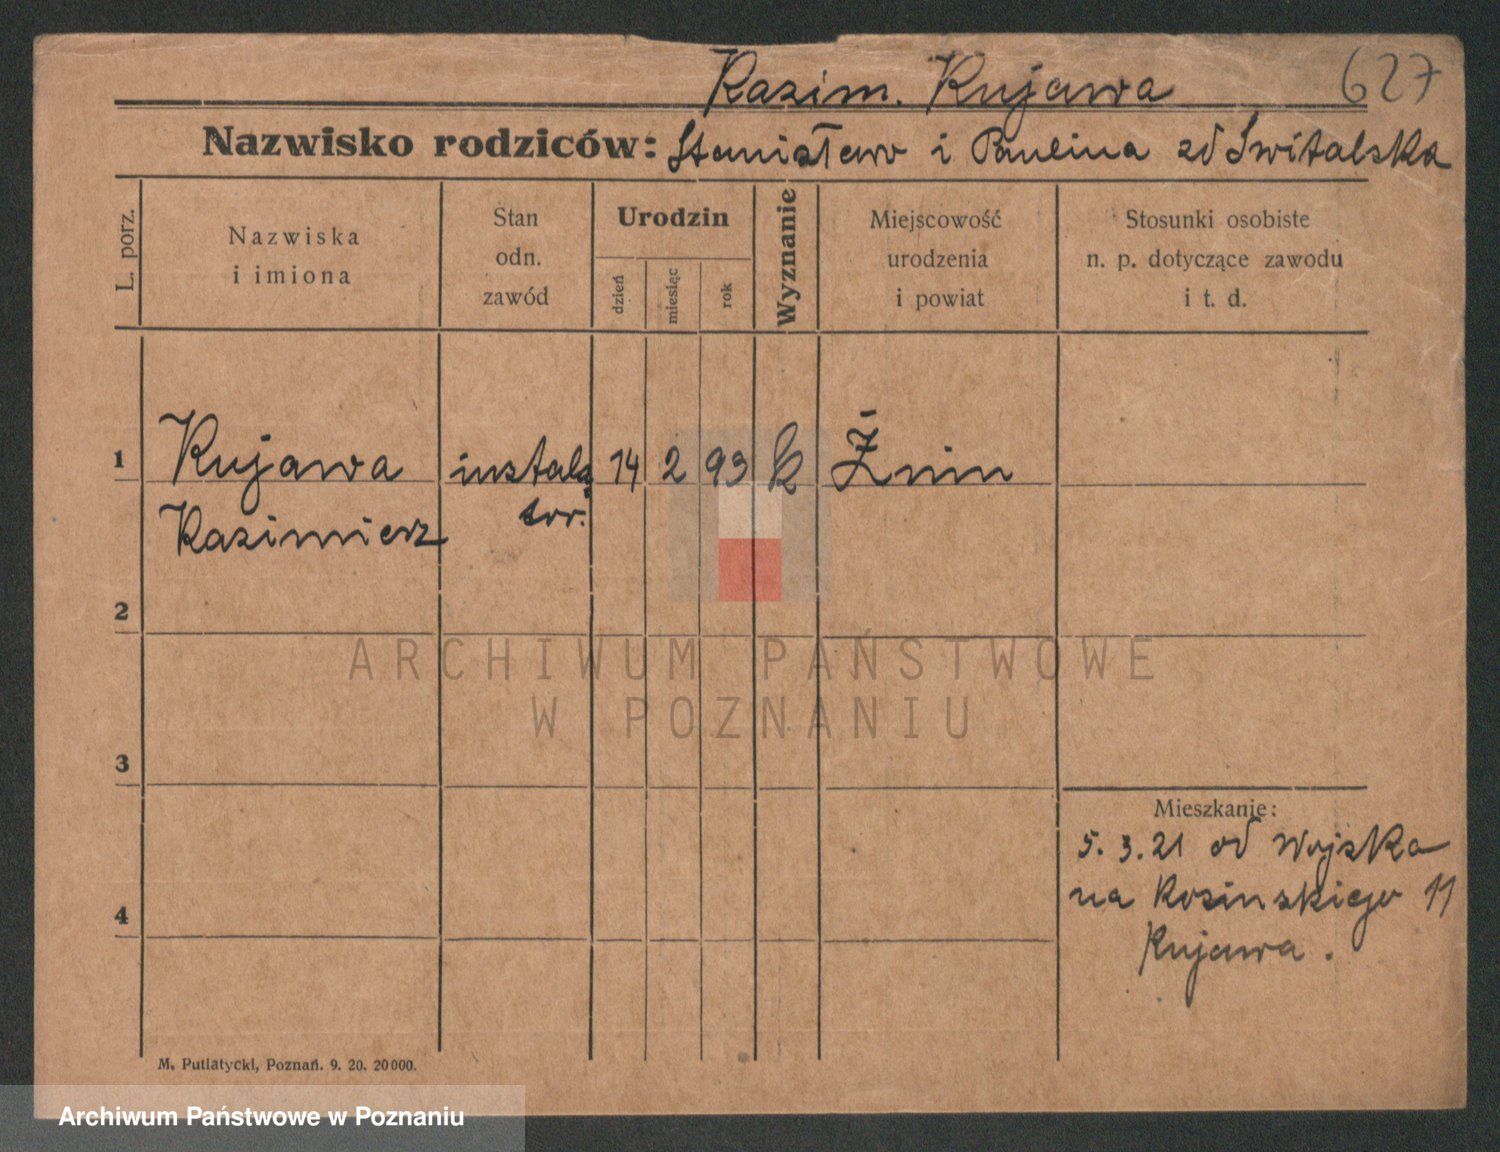 Kazim. Kujawa 627
Nazwisko rodziców: Stanisław i Paulina zd Switalska
L. porz.
Nazwiska
i imiona
Stan
odn.
zawód
Urodzin
dzień
miesiąc
rok
Wyznanie
Miejscowość
urodzenia
i powiat
Stosunki osobiste
n. p. dotyczące zawodu
i t. d.
1 Kujawa instala 14 2 93 k Żnin
Kazimierz tor.
2
3
Mieszkanie:
5.3.21 od Wojska
na Kosinskiego 11
Kujawa.
4
M. Putiatycki, Poznań. 9. 20. 20000.
ARCHIWUM PAŃSTWOWE
W POZNANIU
Archiwum Państwowe w Poznaniu